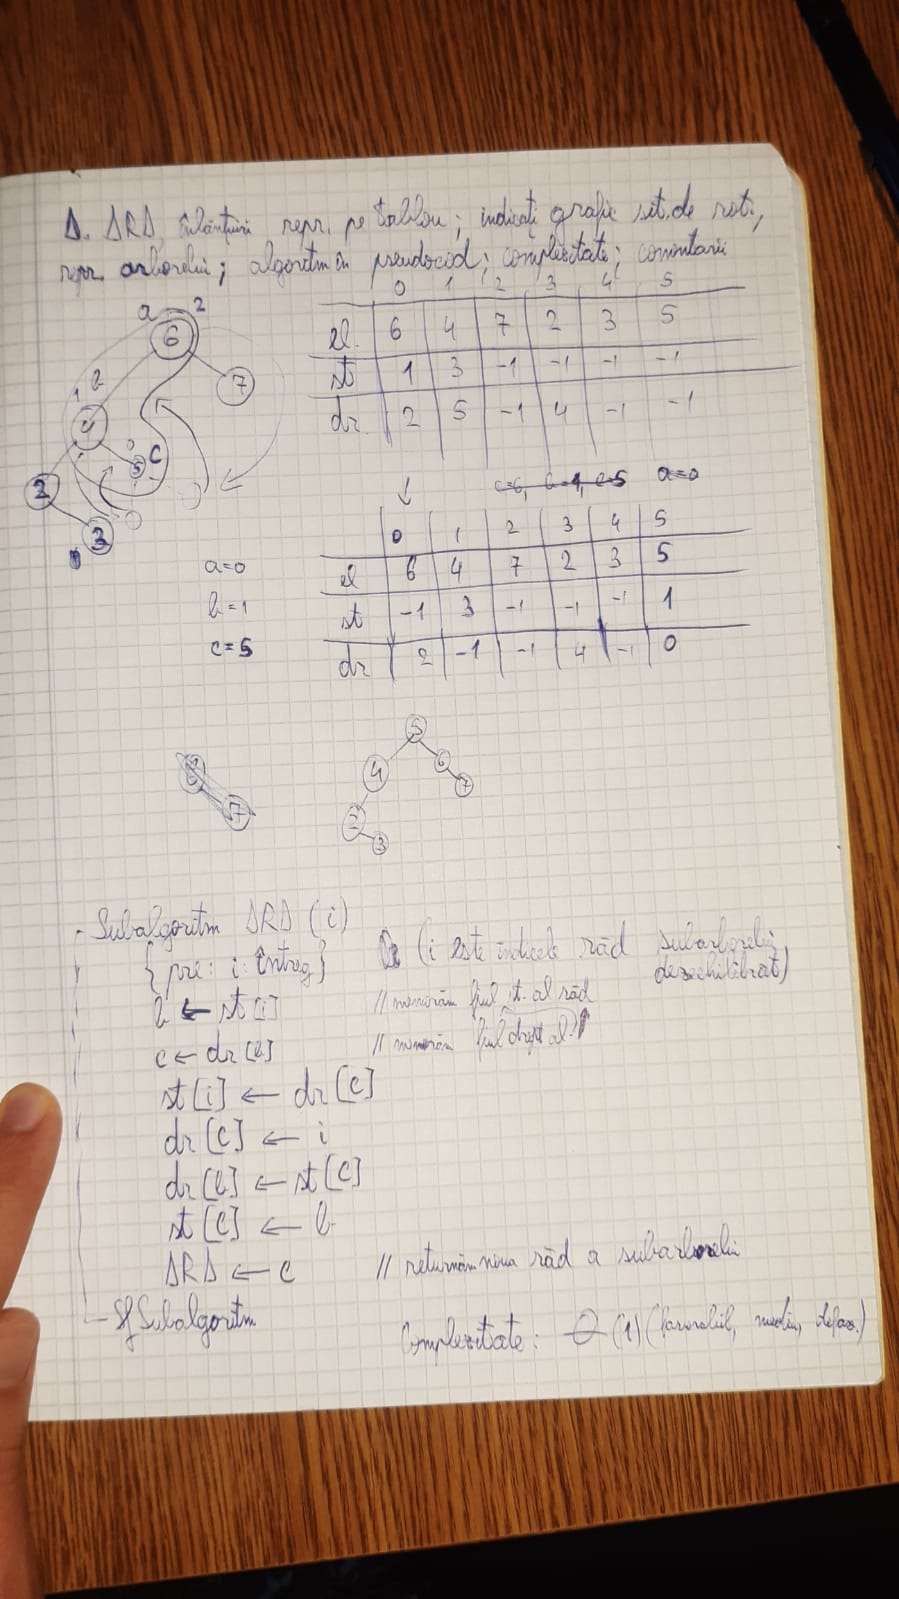 D. DRD, înlănțuiri repr. pe tablou; indicați grafic sit. de rot.,
repr. arborelui; algoritm în pseudocod; complexitate; comentarii
a 2
6
7
4
5 C
2
3
0 1 2 3 4 5
el. 6 4 7 2 3 5
st 1 3 -1 -1 -1 -1
dr 2 5 -1 4 -1 -1
a=0
0 1 2 3 4 5
el 6 4 7 2 3 5
st -1 3 -1 -1 -1 1
dr 2 -1 -1 4 -1 0
a=0
b=1
c=5
5
4 6
7
2
3
7
Subalgoritm DRD (i)
{pre: i: Întreg} (i este indicele răd subarborelui
dezechilibrat)
b ← st[i] // memorăm fiul st. al răd
c ← dr[b] // memorăm fiul drept al
st[i] ← dr[c]
dr[c] ← i
dr[b] ← st[c]
st[c] ← b
DRD ← c // returnăm noua răd a subarborelui
Sf Subalgoritm
Complexitate: Θ(1) (favorabil, mediu, defav.)